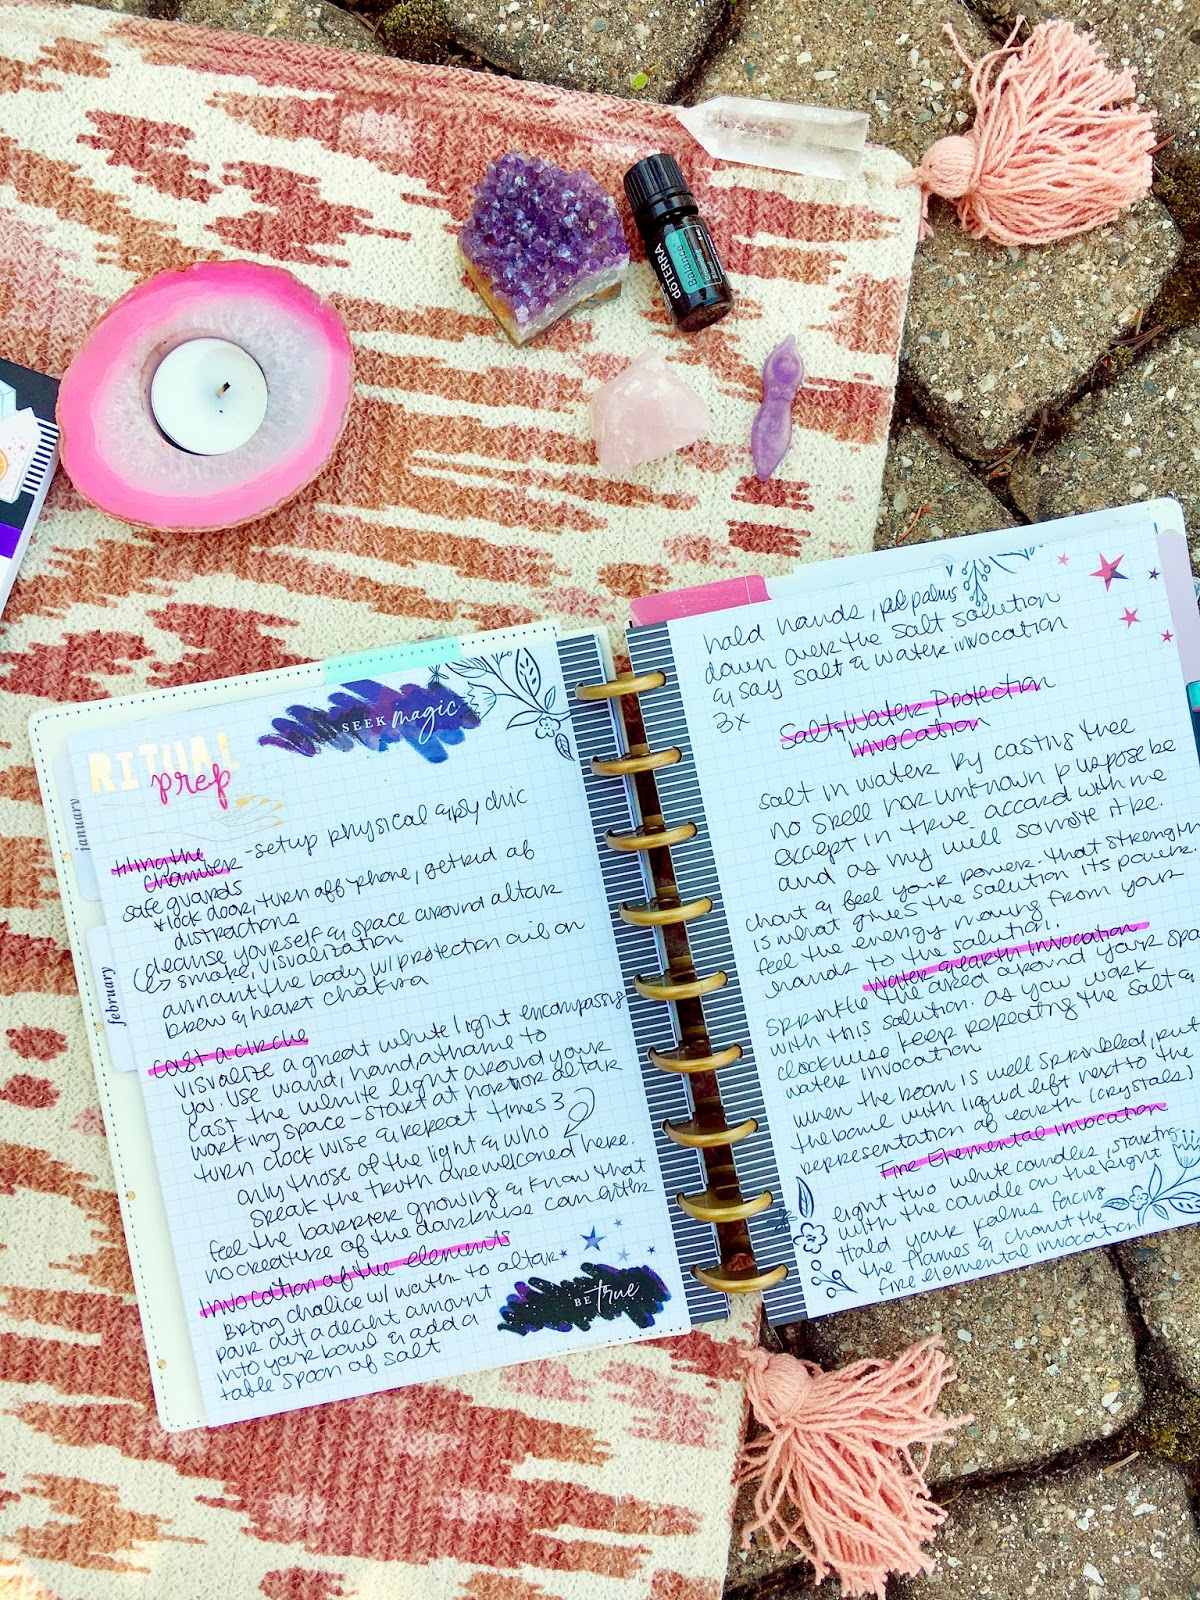 dōTERRA
Balance
SEEK magic
RITUAL
prep
january
february
tiling the
chamber - setup physical & psychic
safe guards
lock door, turn off phone, get rid of
distractions
cleanse yourself & space around altar
smoke, visualization
annoint the body w/ protection oil on
brow & heart chakra
cast a circle
visualize a great white light encompassing
you. Use wand, hand, athame to
cast the white light around your
working space - start at nor altar
turn clockwise & repeat times 3
only those of the light & who
speak the truth are welcomed here.
feel the barrier growing & know that
no creature of the darkness can enter
invocation of the elements
Bring chalice w/ water to altar
pour out a decent amount
into your bowl & add a
table spoon of salt
BE true
hold hands, palms
down over the salt solution
& say salt & water invocation
3x
Salt & Water Protection
Invocation
salt in water by casting thee
no spell nor unknown purpose be
except in true accord with me
and as my will so mote it be.
chant & feel your power. that strength
is what gives the solution its power.
feel the energy moving from your
hands to the solution.
Water & earth Invocation
sprinkle the area around your space
with this solution. as you work
clockwise keep repeating the salt &
water invocation
when the room is well sprinkled, put
the bowl with liquid left next to the
representation of earth (crystals)
Fire Elemental Invocation
light two white candles, starting
with the candle on the right
Hold your palms facing
the flames & chant the
fire elemental invocation